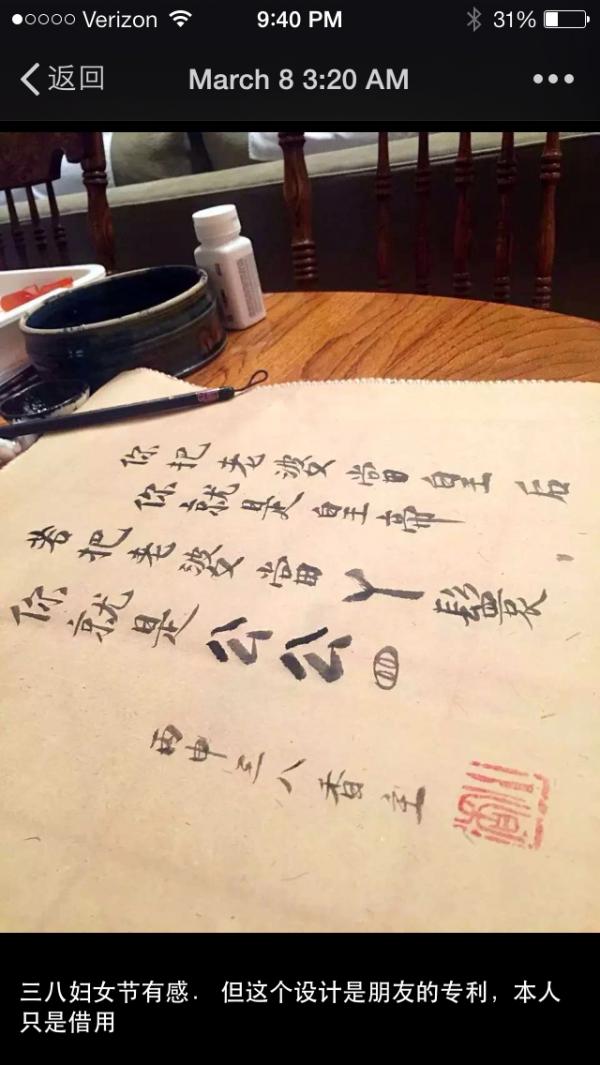 Verizon 9:40 PM 31%
返回 March 8 3:20 AM
你把老婆當皇后
你就是皇帝
若把老婆當丫鬟
你就是公公
丙申三八香
三八妇女节有感． 但这个设计是朋友的专利，本人
只是借用